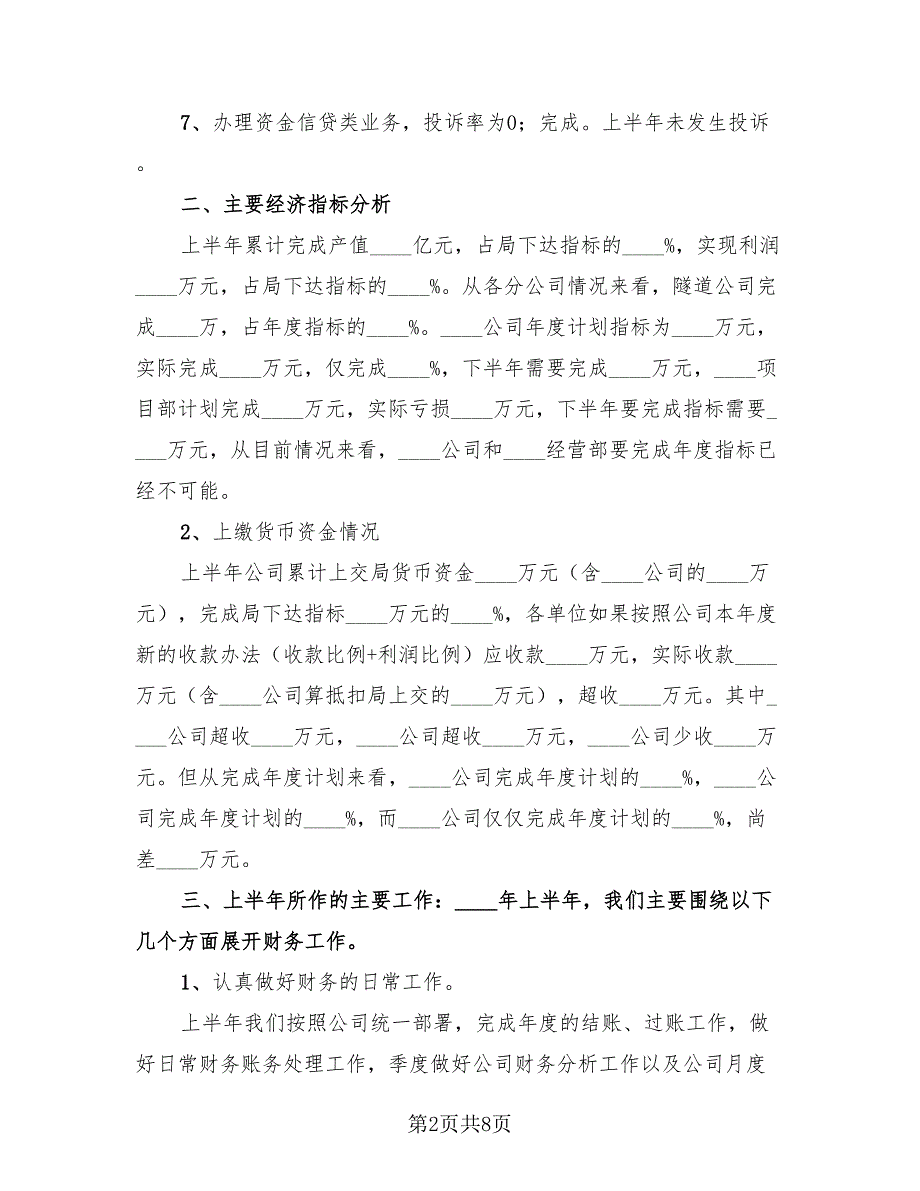 7、办理资金信贷类业务，投诉率为0；完成。上半年未发生投诉
。
二、主要经济指标分析
上半年累计完成产值____亿元，占局下达指标的____%，实现利润
____万元，占局下达指标的____%。从各分公司情况来看，隧道公司完
成____万，占年度指标的____%。____公司年度计划指标为____万元，
实际完成____万元，仅完成____%，下半年需要完成____万元，____项
目部计划完成____万元，实际亏损____万元，下半年要完成指标需要_
___万元，从目前情况来看，____公司和____经营部要完成年度指标已
经不可能。
2、上缴货币资金情况
上半年公司累计上交局货币资金____万元（含____公司的____万
元），完成局下达指标____万元的____%，各单位如果按照公司本年度
新的收款办法（收款比例+利润比例）应收款____万元，实际收款____
万元（含____公司算抵扣局上交的____万元），超收____万元。其中_
___公司超收____万元，____公司超收____万元，____公司少收____万
元。但从完成年度计划来看，____公司完成年度计划的____%，____公
司完成年度计划的____%，而____公司仅仅完成年度计划的____%，尚
差____万元。
三、上半年所作的主要工作：____年上半年，我们主要围绕以下
几个方面展开财务工作。
1、认真做好财务的日常工作。
上半年我们按照公司统一部署，完成年度的结账、过账工作，做
好日常财务账务处理工作，季度做好公司财务分析工作以及公司月度
第2页共8页